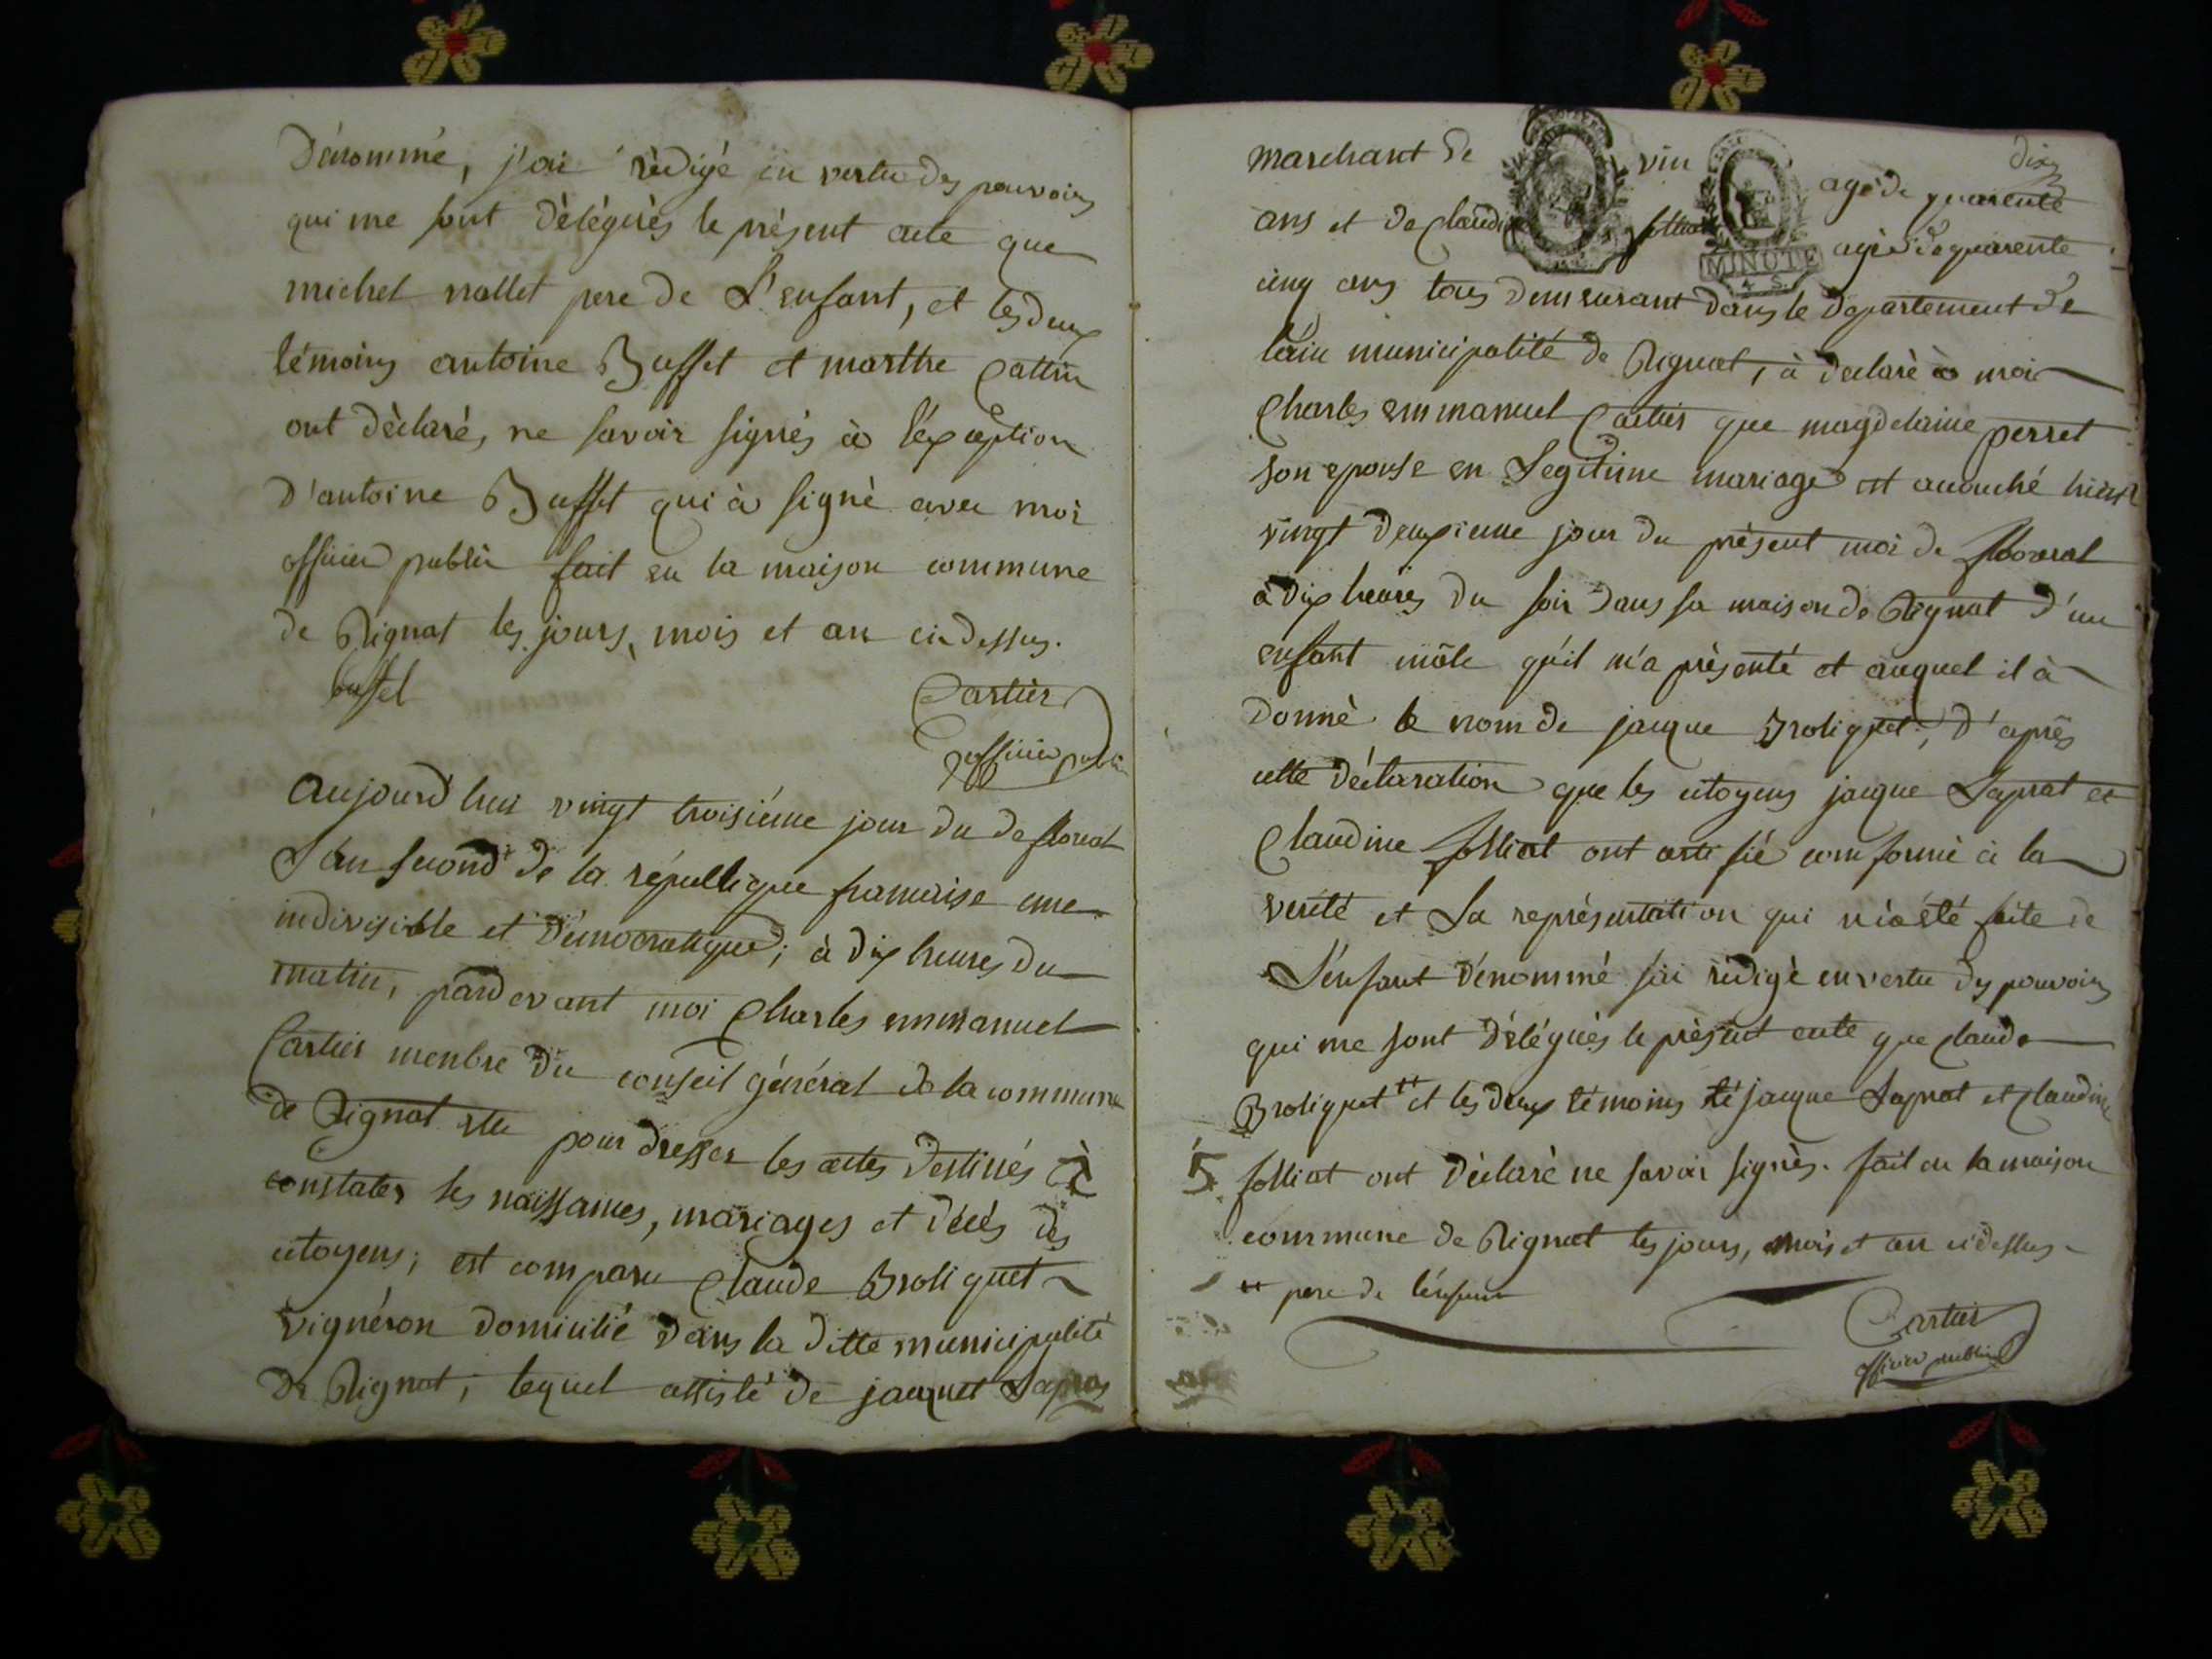 Dénommé, j'ai rédigé en vertu des pouvoirs
qui me sont délégués le présent acte que
michel nallet pere de L'enfant, et les deux
témoins antoine Buffet et marthe Cattin
ont déclarés, ne savoir signés à l'éxception
D'antoine Buffet qui à signé avec moi
officier public fait en la maison commune
de Rignat les jours, mois et an ci dessus.
buffet Cartier
officier public
aujourd'hui vingt troisiéme jour du de floreal
L'an second de la république francaise une
indivisible et Démocratique; à dix heures du
matin, pardevant moi Charles emmanuel
Cartier menbre du conseil général de la commune
de Rignat élu pour dresser les actes destinés à
constater les naissances, mariages et décés des
citoyens; est comparu Claude Broliquet
vignéron domicilié dans la ditte municipalité
De Rignat, lequel assisté de jacquet Laprat
marchant de vin agé de quarente dix
ans et de Claudine folliat agée de quarente
cinq ans tous demeurant dans le departement de
l'ain municipalité de Rignat, à declaré à moi
Charles emmanuel Cartier que magdelaine perret
son epouse en Legitime mariage est accouché hier
vingt deuxieme jour du présent moi de floreal
à dix heures du soir dans sa maison de Rignat d'un
enfant mâle qu'il m'a présenté et auquel il à
donné le nom de jacque Broliquet, D'après
cette déclaration que les citoyens jacque Laprat et
Claudine folliat ont certifié conforme à la
verité et La représentation qui m'a été faite de
L'enfant dénommé j'ai rédigé en vertu des pouvoirs
qui me sont délégués le présent acte que claude
Broliquet ++ et les deux témoins té jacque Laprat et Claudine
folliat ont déclaré ne savoir signés. fait en la maison
commune de Rignat les jours, mois et an ci dessus
++ pere de l'enfant
Cartier
officier public
MINUTE
4 S.